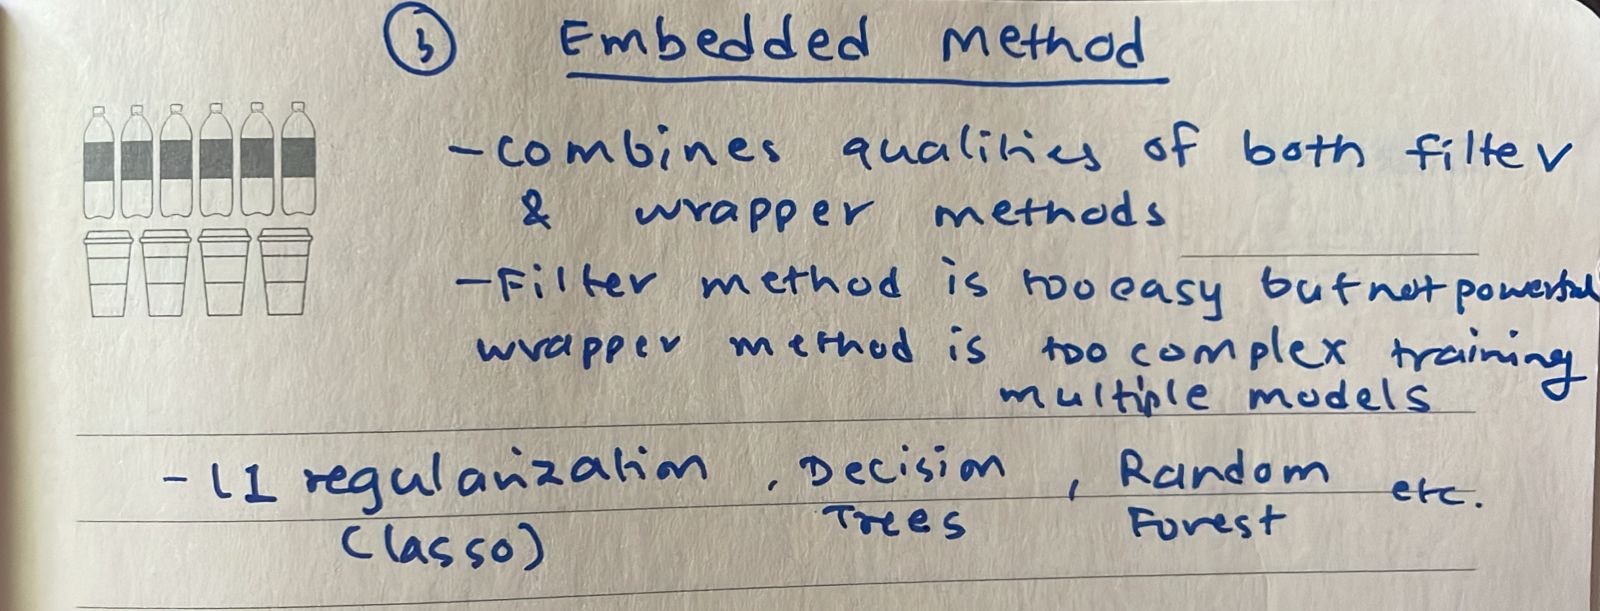 3 Embedded Method
- combines qualities of both filter
& wrapper methods
- Filter method is too easy but not powerful
wrapper method is too complex training
multiple models
- L1 regularization , Decision , Random etc.
(lasso) Trees Forest